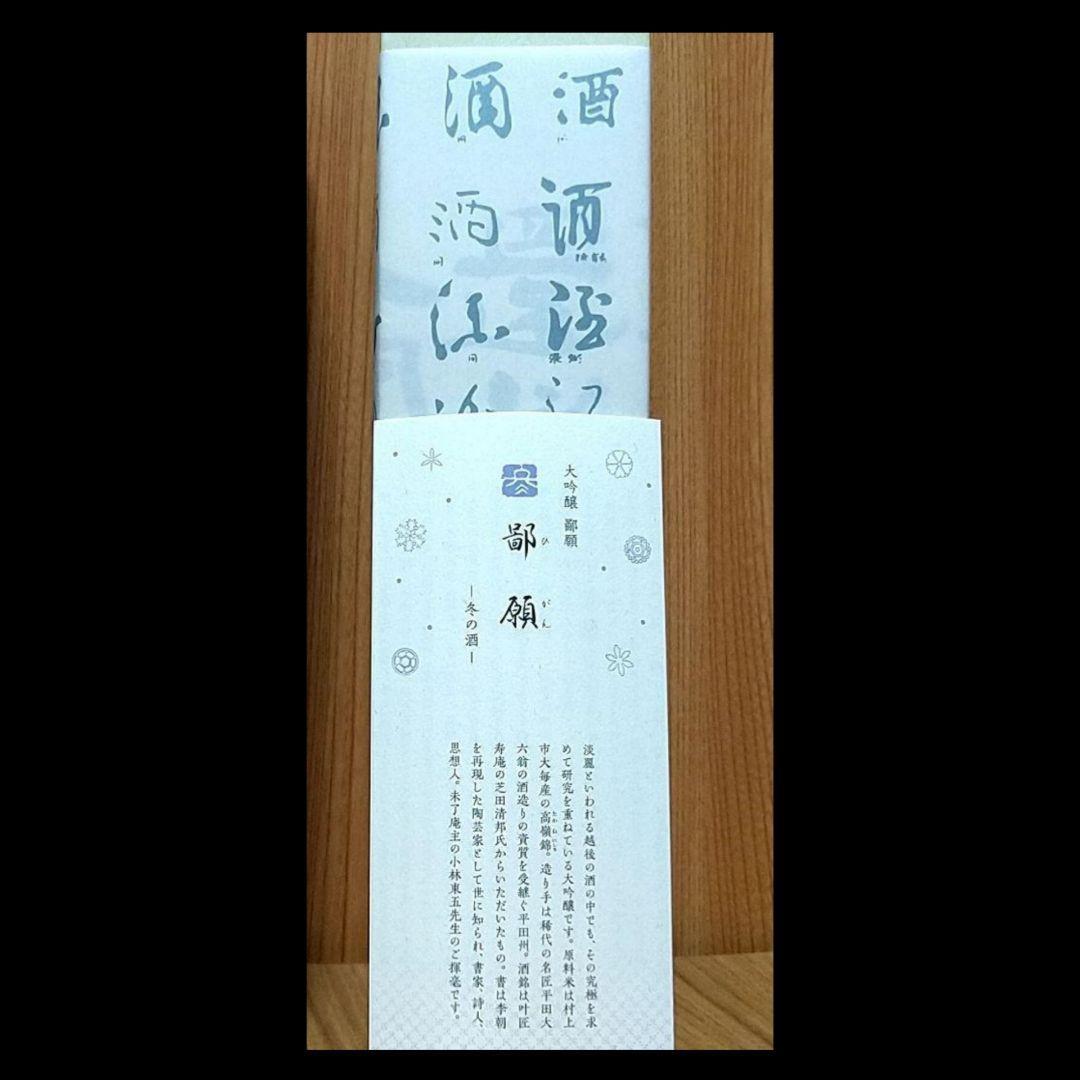 酒
酒
酒
酒
大吟醸 鄙願
冬
鄙願
ひがん
―冬の酒―
淡麗といわれる越後の酒の中でも、その究極を求
めて研究を重ねている大吟醸です。原料米は村上
市大毎産の高嶺錦。造り手は稀代の名匠平田大
たかねにしき
六翁の酒造りの資質を受継ぐ平田州。酒銘は叶匠
寿庵の芝田清邦氏からいただいたもの。書は李朝
を再現した陶芸家として世に知られ、書家、詩人、
思想人。未了庵主の小林東五先生のご揮毫です。